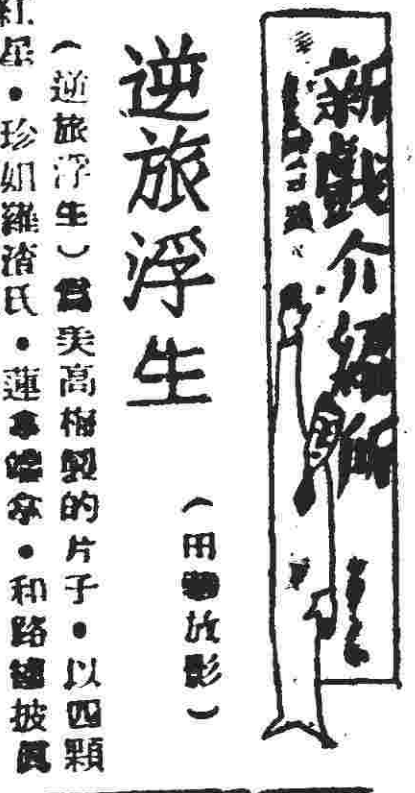 新戲介紹所
逆旅浮生
（田　放影）
（逆旅浮生）為美高梅製的片子●以四顆
紅星●珍妲羅渣氏●蓮拿　拿●和路　披